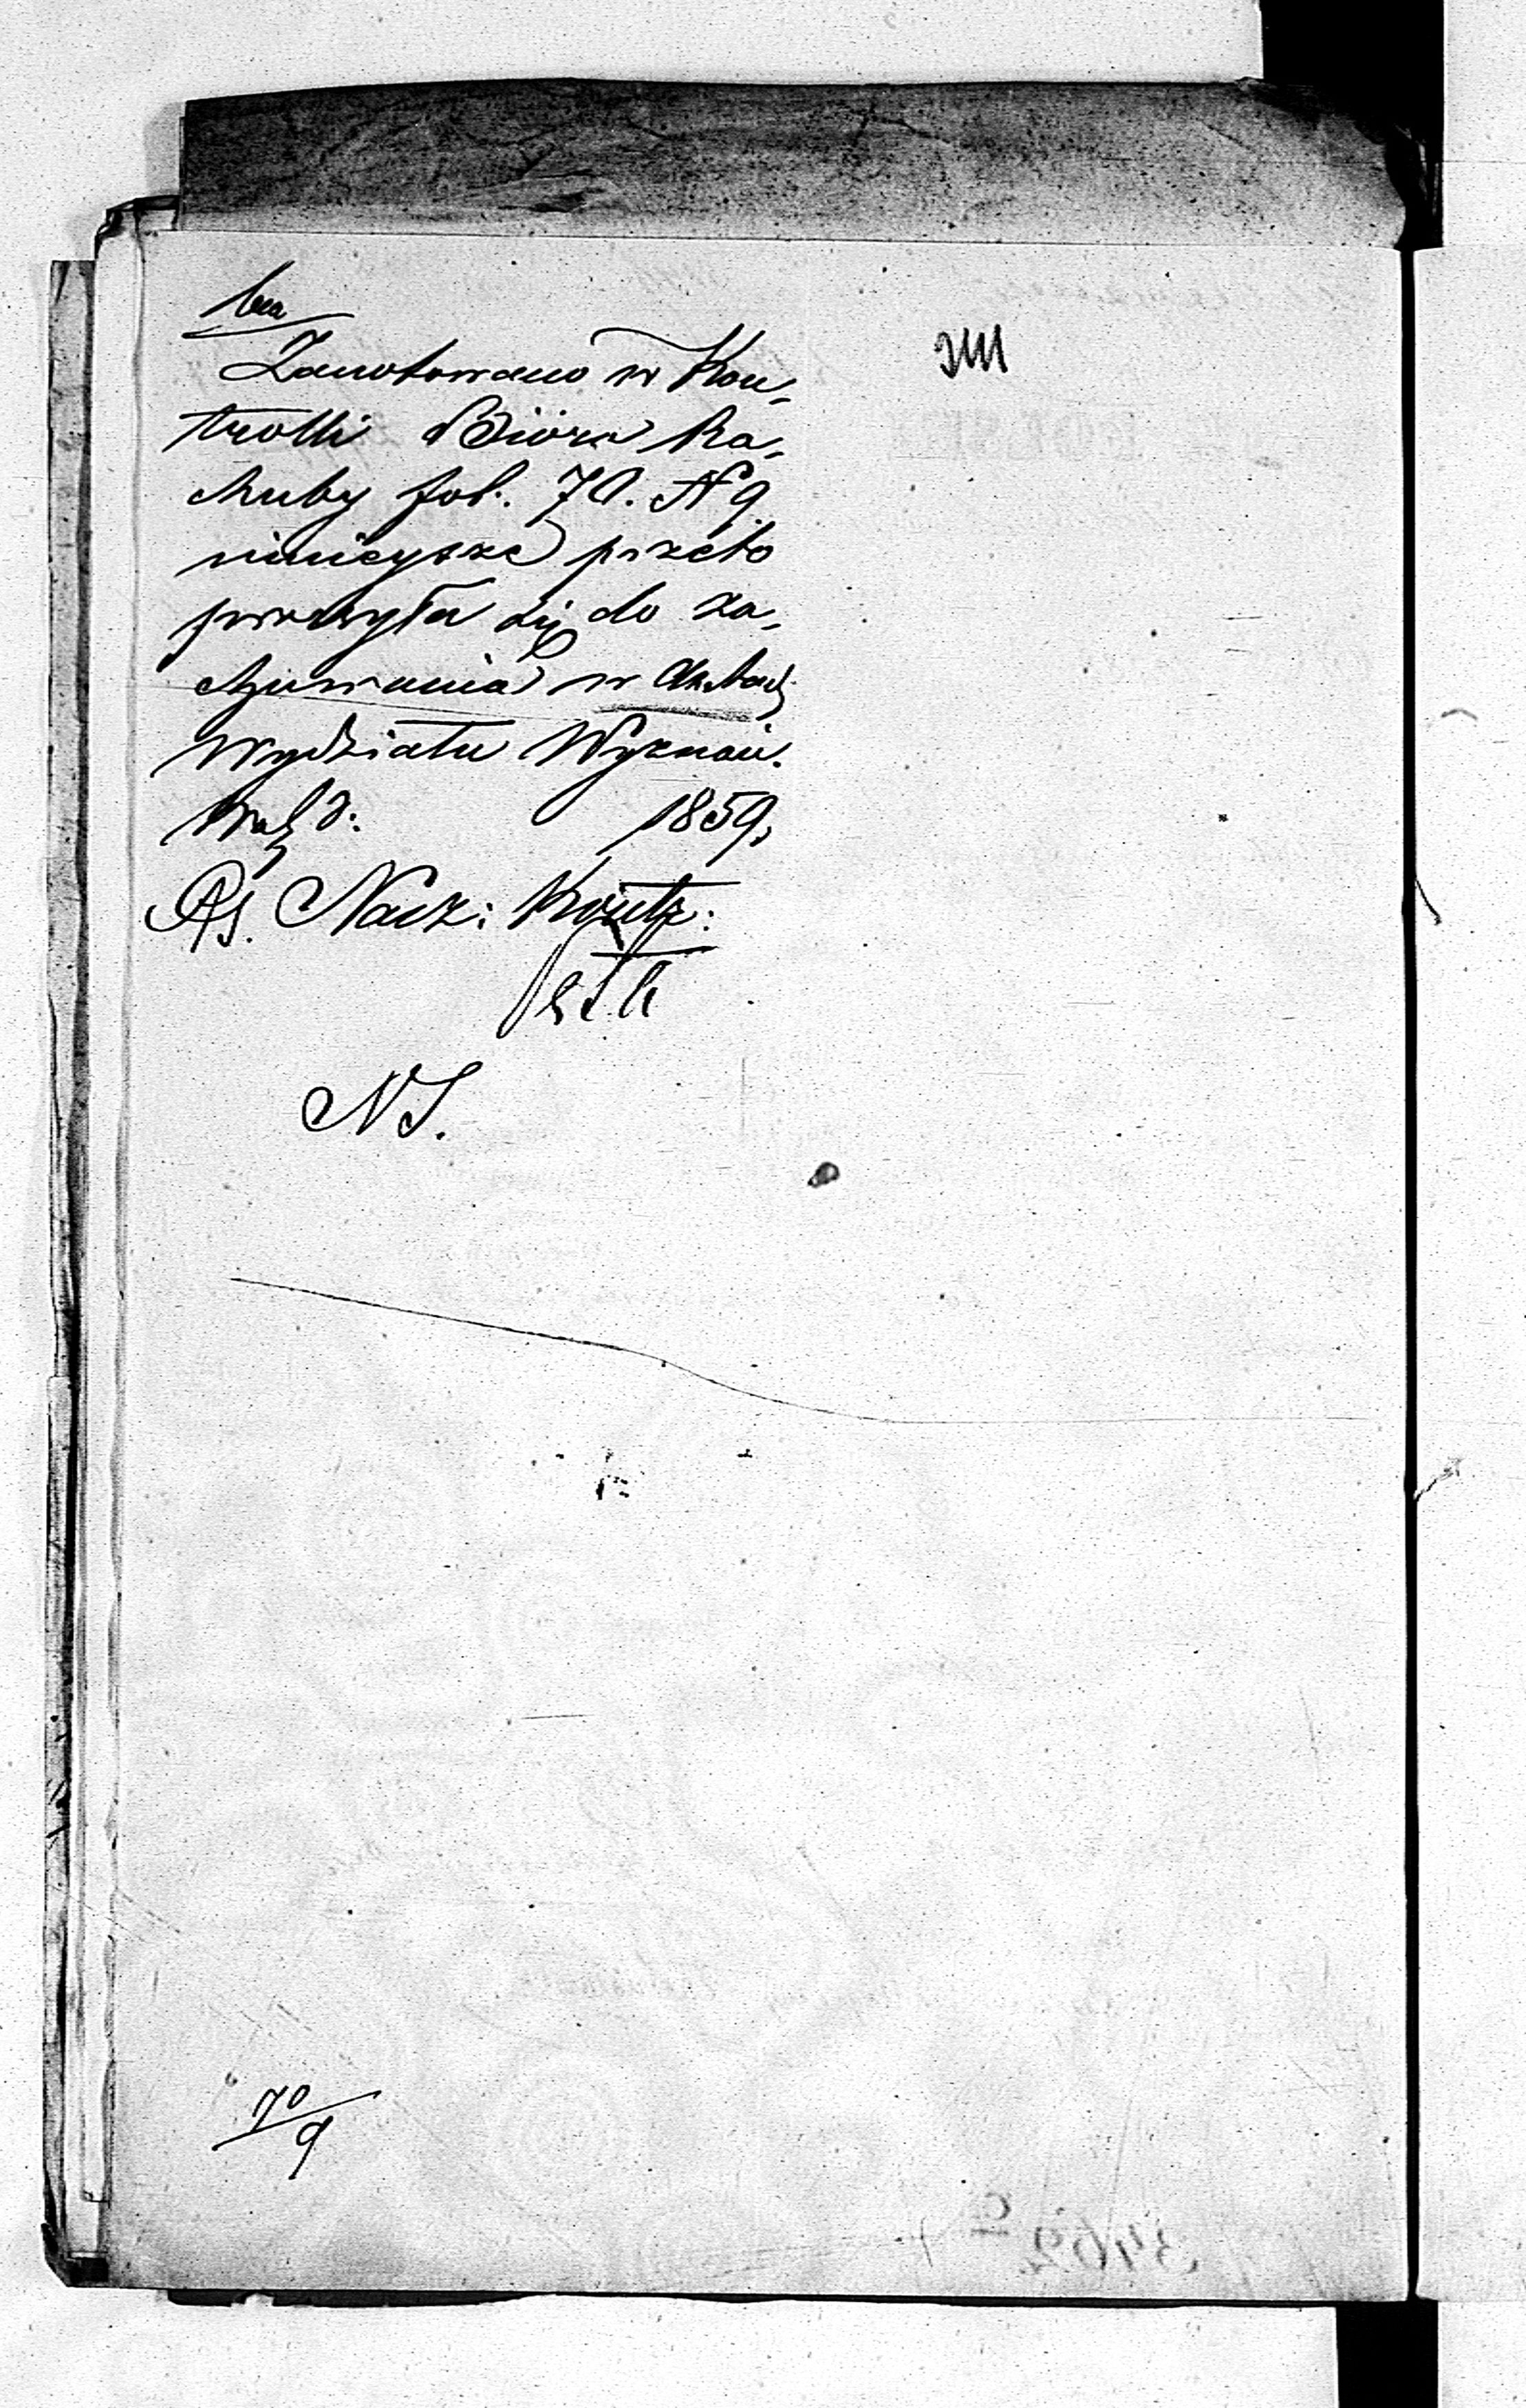 Zanotowano w Kon„
trolli Biura Ra„
chuby fol. 70. N 9
niniejsze przeto
przesyła się do za„
chowania w Aktach
Wydziału Wyznań.
1859.
Nacz: Kontr:
NS.
70/9
3462